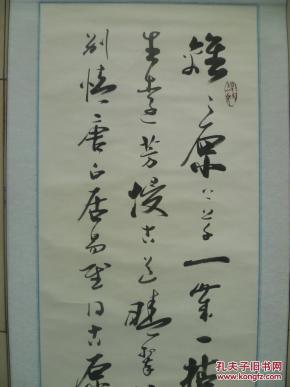 離々原上草一歲一枯
生遠芳侵古道晴翠
别情唐白居易賦得古原
孔夫子旧书网